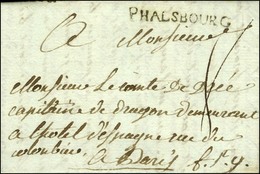 PHALSBOURG
A Monsieur
Monsieur Le comte de
capitaine de dragon demeurant
a lhotel despagne rue du
colombier
a Paris